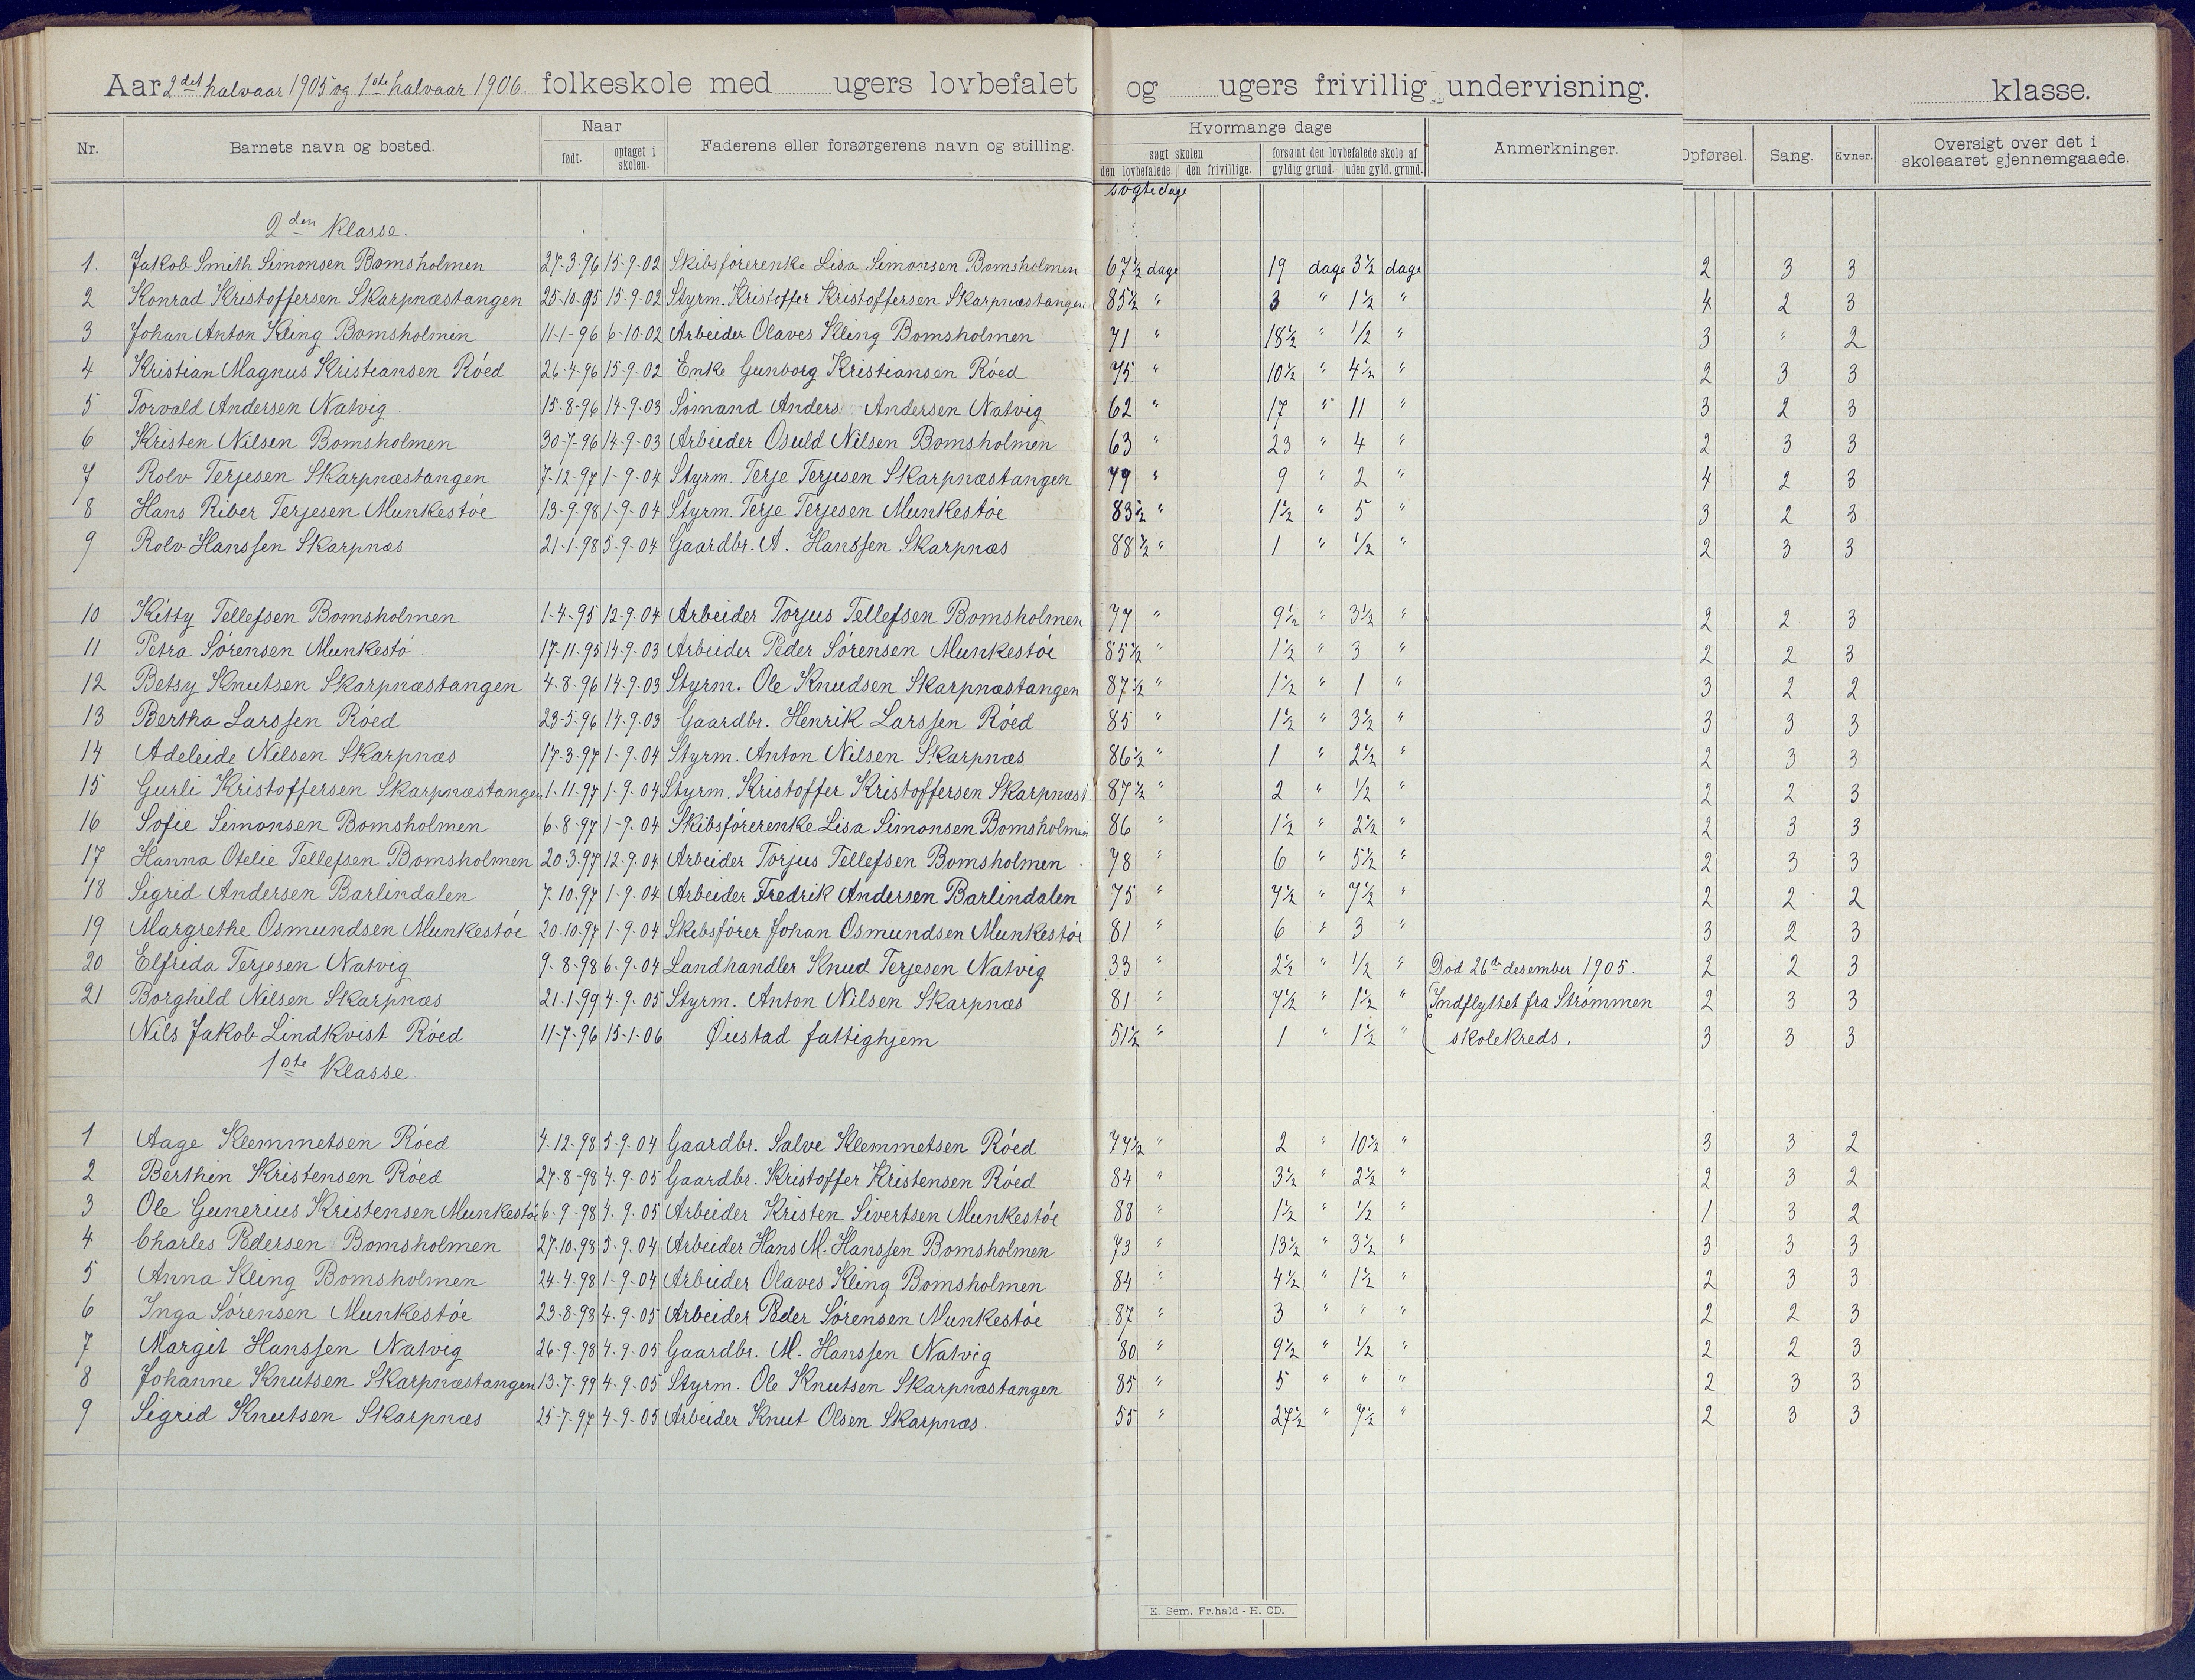 Aar 2det halvaar 1905 og 1ste halvaar 1906. folkeskole med ugers lovbefalet og ugers frivillig undervisning. klasse.
Nr. Barnets navn og bosted. Naar født. optaget i skolen. Faderens eller forsørgerens navn og stilling. Hvormange dage søgt skolen den lovbefalede. den frivillige. forsømt den lovbefalede skole af gyldig grund. uden gyld. grund. Anmerkninger. Opførsel. Sang. Evner. Oversigt over det i skoleaaret gjennemgaaede.
søgte dage
2den Klasse.
1. Jakob Smith Simonsen Bomsholmen 27-3-96 15-9-02 Skibsførerenke Lisa Simonsen Bomsholmen 67½ dage 19 dage 3½ dage 2 3 3
2 Konrad Kristoffersen Skarpnæstangen 25-10-95 15-9-02 Styrm. Kristoffer Kristoffersen Skarpnæstangen 85½ " 3 " 1½ " 4 2 3
3 Johan Anton Kling Bomsholmen 11-1-96 6-10-02 Arbeider Olaves Kling Bomsholmen 71 " 18½ " ½ " 3 " 2
4 Kristian Magnus Kristiansen Røed 26-4-96 15-9-02 Enke Gunborg Kristiansen Røed 75 " 10½ " 4½ " 2 3 3
5 Torvald Andersen Natvig 15-8-96 14-9-03 Sømand Anders Andersen Natvig 62 " 17 " 11 " 3 2 3
6 Kristen Nilsen Bomsholmen 30-7-96 14-9-03 Arbeider Osuld Nilsen Bomsholmen 63 " 23 " 4 " 2 3 3
7 Rolv Terjesen Skarpnæstangen 7-12-97 1-9-04 Styrm. Terje Terjesen Skarpnæstangen 79 " 9 " 2 " 4 2 3
8 Hans Riber Terjesen Munkestøe 13-9-98 1-9-04 Styrm. Terje Terjesen Munkestøe 83½ " 1½ " 5 " 3 2 3
9 Rolv Hanssen Skarpnæs 21-1-98 5-9-04 Gaardbr. A. Hanssen Skarpnæs 88½ " 1 " ½ " 2 3 3
10 Kitty Tellefsen Bomsholmen 1-4-95 12-9-04 Arbeider Torjus Tellefsen Bomsholmen 77 " 9½ " 3½ " 2 2 3
11 Petra Sørensen Munkestø 17-11-95 14-9-03 Arbeider Peder Sørensen Munkestøe 85½ " 1½ " 3 " 2 2 3
12 Betsy Knutsen Skarpnæstangen 4-8-96 14-9-03 Styrm. Ole Knudsen Skarpnæstangen 87½ " 1½ " 1 " 3 2 2
13 Bertha Larssen Røed 23-5-96 14-9-03 Gaardbr. Henrik Larssen Røed 85 " 1½ " 3½ " 3 3 3
14 Adeleide Nilsen Skarpnæs 17-3-97 1-9-04 Styrm. Anton Nilsen Skarpnæs 86½ " 1 " 2½ " 2 3 3
15 Gurli Kristoffersen Skarpnæstangen 1-11-97 1-9-04 Styrm. Kristoffer Kristoffersen Skarpnæst 87½ " 2 " ½ " 2 2 3
16 Sofie Simonsen Bomsholmen 6-8-97 1-9-04 Skibsførerenke Lisa Simonsen Bomsholmen 86 " 1½ " 2½ " 2 3 3
17 Hanna Otelie Tellefsen Bomsholmen 20-3-97 12-9-04 Arbeider Torjus Tellefsen Bomsholmen 78 " 6 " 5½ " 2 3 3
18 Sigrid Andersen Barlindalen 7-10-97 1-9-04 Arbeider Fredrik Andersen Barlindalen 75 " 7½ " 7½ " 2 2 2
19 Margrethe Osmundsen Munkestøe 20-10-97 1-9-04 Skibsfører Johan Osmundsen Munkestøe 81 " 6 " 3 " 3 2 3
20 Elfrida Terjesen Natvig 9-8-98 6-9-04 Landhandler Knud Terjesen Natvig 33 " 2½ " ½ " Død 26de desember 1905. 2 2 3
21 Borghild Nilsen Skarpnæs 21-1-99 4-9-05 Styrm. Anton Nilsen Skarpnæs 81 " 7½ " 1½ " Indflyttet fra Strømmen 2 3 3
Nils Jakob Lindkvist Røed 11-7-96 15-1-06 Øiestad fattighjem 51½ " 1 " 1½ " skolekreds. 3 3 3
1ste Klasse.
1 Aage Klemmetsen Røed 4-12-98 5-9-04 Gaardbr. Salve Klemmetsen Røed 77½ " 2 " 10½ " 3 3 2
2 Berthin Kristensen Røed 27-8-98 4-9-05 Gaardbr. Kristoffer Kristensen Røed 84 " 3½ " 2½ " 2 3 2
3 Ole Gunerius Kristensen Munkestøe 6-9-98 4-9-05 Arbeider Kristen Sivertsen Munkestøe 88 " 1½ " ½ " 1 3 2
4 Charles Pedersen Bomsholmen 27-10-98 5-9-04 Arbeider Hans M. Hanssen Bomsholmen 73 " 13½ " 3½ " 3 3 3
5 Anna Kling Bomsholmen 24-4-98 1-9-04 Arbeider Olaves Kling Bomsholmen 84 " 4½ " 1½ " 2 3 3
6 Inga Sørensen Munkestøe 23-8-98 4-9-05 Arbeider Peder Sørensen Munkestøe 87 " 3 " " " 2 2 3
7 Margit Hanssen Natvig 26-9-98 4-9-05 Gaardbr. M. Hanssen Natvig 80 " 9½ " ½ " 2 2 3
8 Johanne Knutsen Skarpnæstangen 13-7-99 4-9-05 Styrm. Ole Knutsen Skarpnæstangen 85 " 5 " " " 2 3 3
9 Sigrid Knutsen Skarpnæs 25-7-97 4-9-05 Arbeider Knut Olsen Skarpnæs. 55 " 27½ " 7½ " 2 3 3
E. Sem. Fr.hald - H. CD.